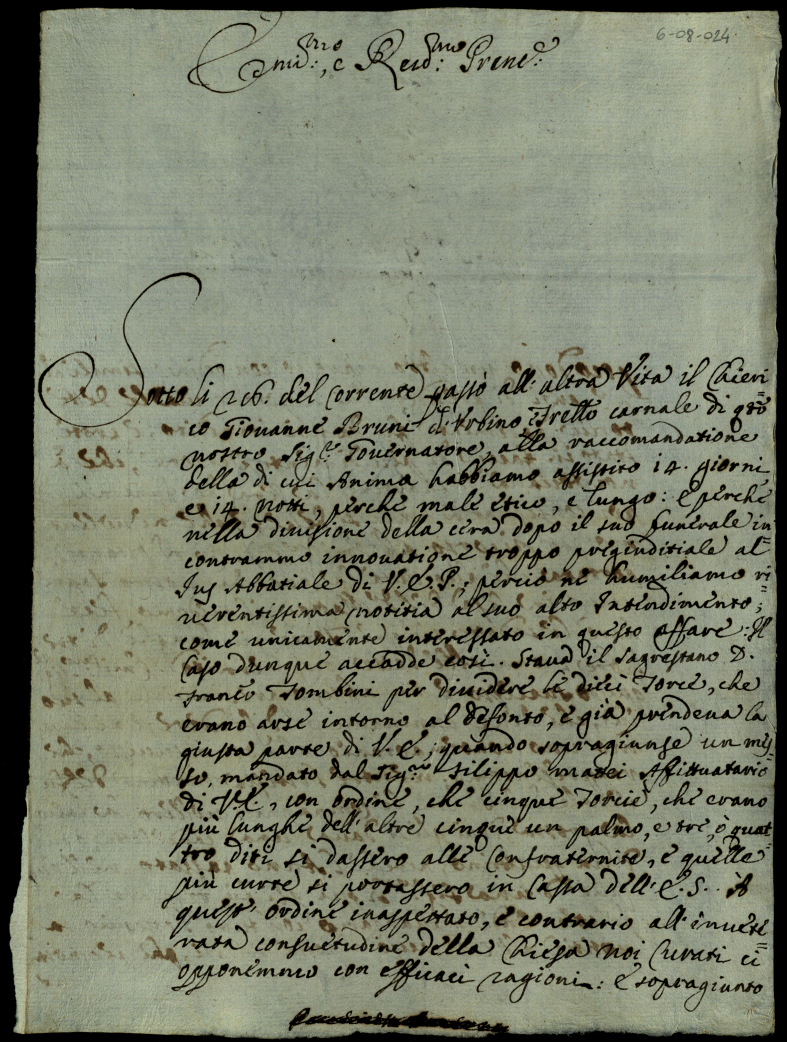 6-08-024.
Em:mo, e Reud:mo Prenc:e
Sotto li 26. del corrente passò all'altra Vita il Chieri
co Giouanne Bruni d'Vrbino Frello carnale di qto
nostro Sig:r Gouernatore, alla raccomandatione
della di cui Anima habbiamo assistito 14. giorni,
e 14. notti, perche male etico, e lungo: e perche
nella diuisione della cera dopo il suo funerale in=
contrammo innouatione troppo pregiuditiale al=
Jus Abbatiale di V. E. P.; perciò ne humiliamo ri=
uerentissima notitia al suo alto Intendimento;
come unicamente interessato in questo affare: Il
Caso dunque accadde così. Staua il Sagrestano D.
Franco Tombini per diuidere le dieci Torce, che
erano arse intorno al defonto, e già prendeua la
giusta parte di V. E., quando sopragiunse un mes=
so, mandato dal Sig:re Filippo Masei Affittuatario
di V. E., con ordine, che cinque Torcie, che erano
più lunghe dell'altre cinque un palmo, e tre, ò quat=
tro diti si dassero alle Confraternite, e quelle
più curte si portassero in Cassa dell'E. S. A
quest'ordine inaspettato, e contrario all'inuete=
rata consuetudine della Chiesa noi Curati ci=
opponemmo con efficaci ragioni: e sopragiunto